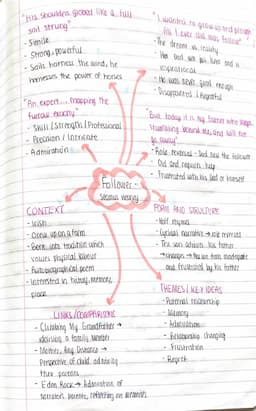 "His shoulders globed like a full
sail strung"
- Simile
- Strong & powerful
- Sails harness the wind, he
harnesses the power of horses
"An expert... mapping the
furrow exactly"
- Skill / Strength / Professional
- Precision / Intricate
- Admiration
"I wanted to grow up and plough
All I ever did was follow"
- The dream vs reality
- His dad was his hero and is
inspirational
- He was never good enough
- Disappointed / Regretful
"But today it is my father who keeps
stumbling behind me, and will not
go away"
- Role reversal - Dad now the follower
- Old and requires help
- Frustrated with his dad or himself
Follower -
Seamus Heaney
CONTEXT
- Irish
- Grew up on a farm
- Born into tradition which
values physical labour
- Autobiographical poem
- Interested in history, memory,
place
FORM AND STRUCTURE
- Half rhyme
- Cyclical narrative → role reversal
- The son admires his father
→ changes →
and frustrated by his father
LINKS/COMPARISONS
- Climbing My Grandfather →
idolising a family member
- Mother, Any Distance →
Perspective of child admiring
their parents
- Eden Rock → Admiration of
narrators parents, reflecting on memories
THEMES / KEY IDEAS
- Paternal relationship
- Memory
- Admiration
- Relationship changing
- Frustration
- Regret